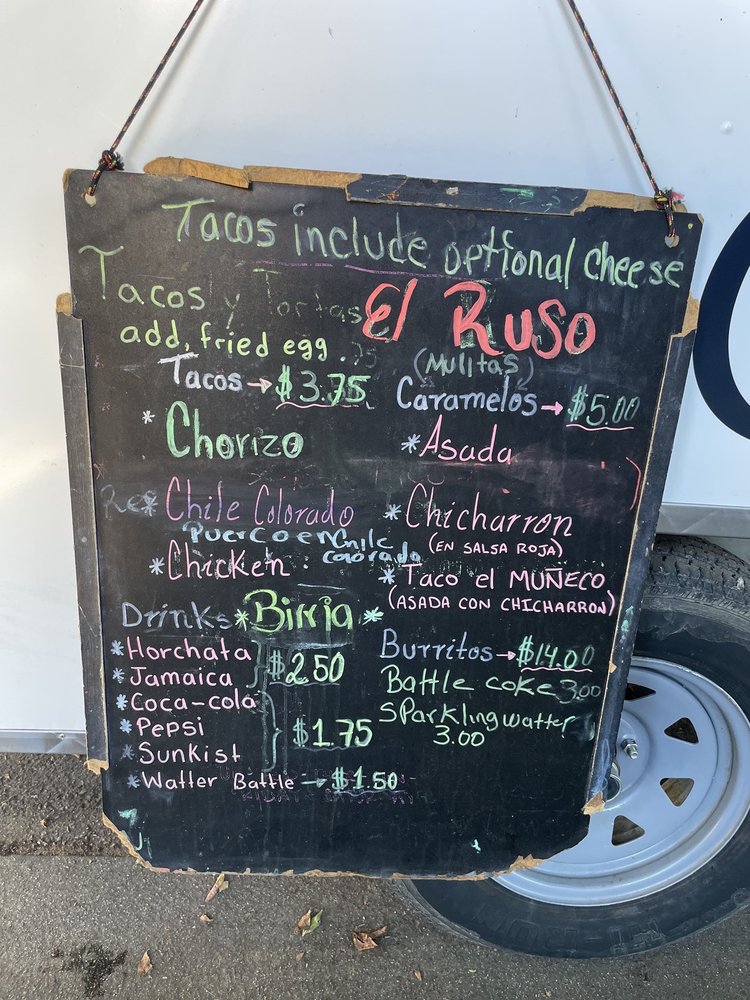 Tacos include optional cheese
Tacos y Tortas
El Ruso
add, fried egg .75
(MULITAS)
Tacos → $3.75
Caramelos → $5.00
* Chorizo
* Asada
* Chile Colorado
Puerco en Chile
colorado
* Chicharron
(EN SALSA ROJA)
* Chicken
* Taco el MUÑECO
(ASADA CON CHICHARRON)
* Birria *
Drinks
* Horchata
* Jamaica
$2.50
* Coca-cola
* Pepsi
* Sunkist
$1.75
* Watter Battle → $1.50
Burritos → $14.00
Battle coke 3.00
Sparkling watter
3.00